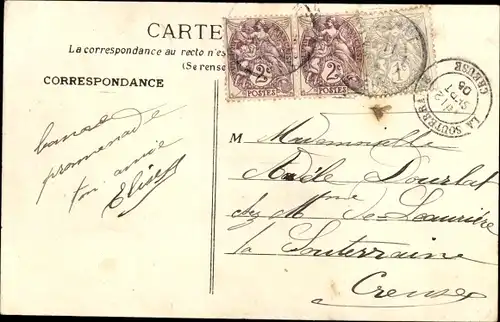 CARTE
La correspondance au recto n'es
(Se rense
CORRESPONDANCE
2c
POSTES
2c
POSTES
1c
LA SOUTERRAINE
CREUSE
05
promenade
ton amie
Elise
M Mademoiselle
Adèle Dourlat
chez Mme de Laurière
la Souterraine
Creuse